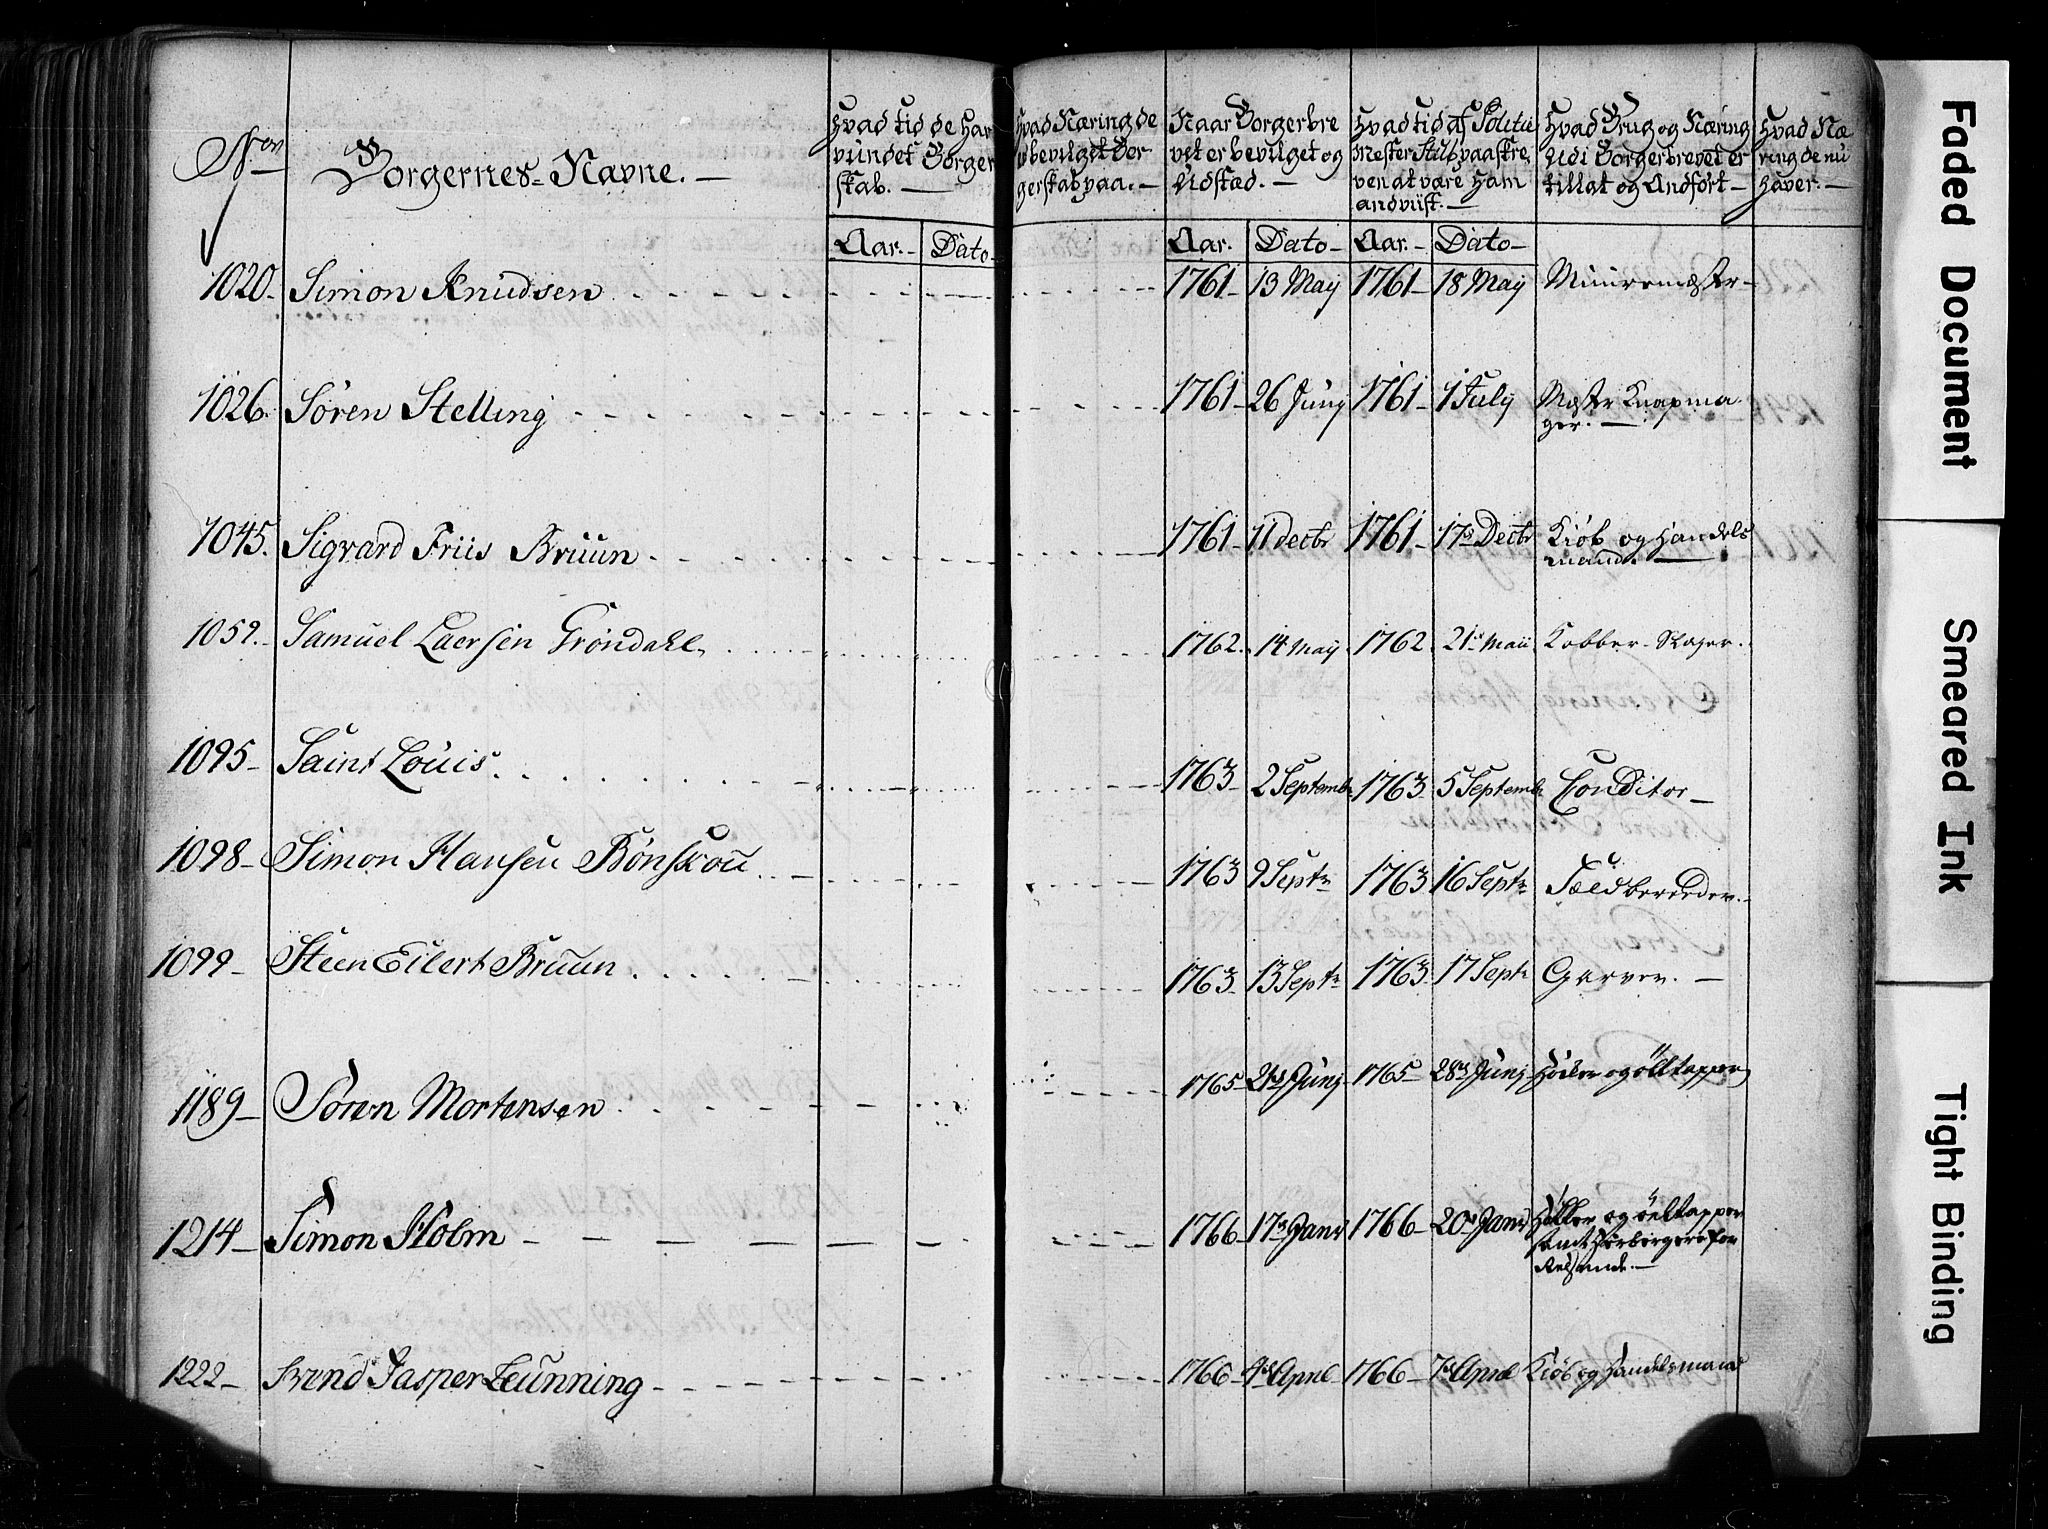 Nerv
Borgernes Navne. —
Hvad tid de har
vundet Borger
skab. —
Hvad Næring de
bevilget Bor
gerskab paa. —
Naar Borgerbre
vet er bevilget og
Udstæd. —
Hvad tid af Politie
Mester Stub paaskre
ven at være Ham
andviist. —
Hvad Brug og Næring
Udi Borgerbrevet er
tillat og Andført —
Hvad Næ
ring de nu
haver. —
Aar. — Dato — Aar. Dato — Aar. — Dato —
1020. Simon Knudsen 1761 — 13 Maij 1761 — 18 Maij Muuremester —
1026. Sören Stelling 1761 — 26 Junij 1761 — 1 July Mester Knapma
ger. —
1045. Sigvard Friis Bruun 1761 — 11 Decbr 1761 — 17 Decbr Kiöb og Handels
mand. —
1059. Samuel Laersen Gröndahl 1762. 14 Maij 1762. 21 Maii Kobber-Slager.
1095 — Saint Louis. 1763 2 Septembr 1763 5 Septembr Conditor —
1098 — Simon Hansen Bönskou 1763 9 Septr 1763 16 Septr Feldbereeder. —
1099 — Steen Eilert Bruun 1763 13 Septr 1763 17 Septr Garver. —
1189 — Sören Mortensen 1765 21 Junij 1765 28 Junij Höcker og ölltapper
1214 — Simon Holm 1766 — 17 Janr 1766 — 20 Janr Höcker og öeltapper
samt Herbergere for
Reisende. —
1222 — Svend Jasper Leunning 1766 — 4 April 1766 — 7 April Kiöb og Handelsmand
Faded Document
Smeared Ink
Tight Binding